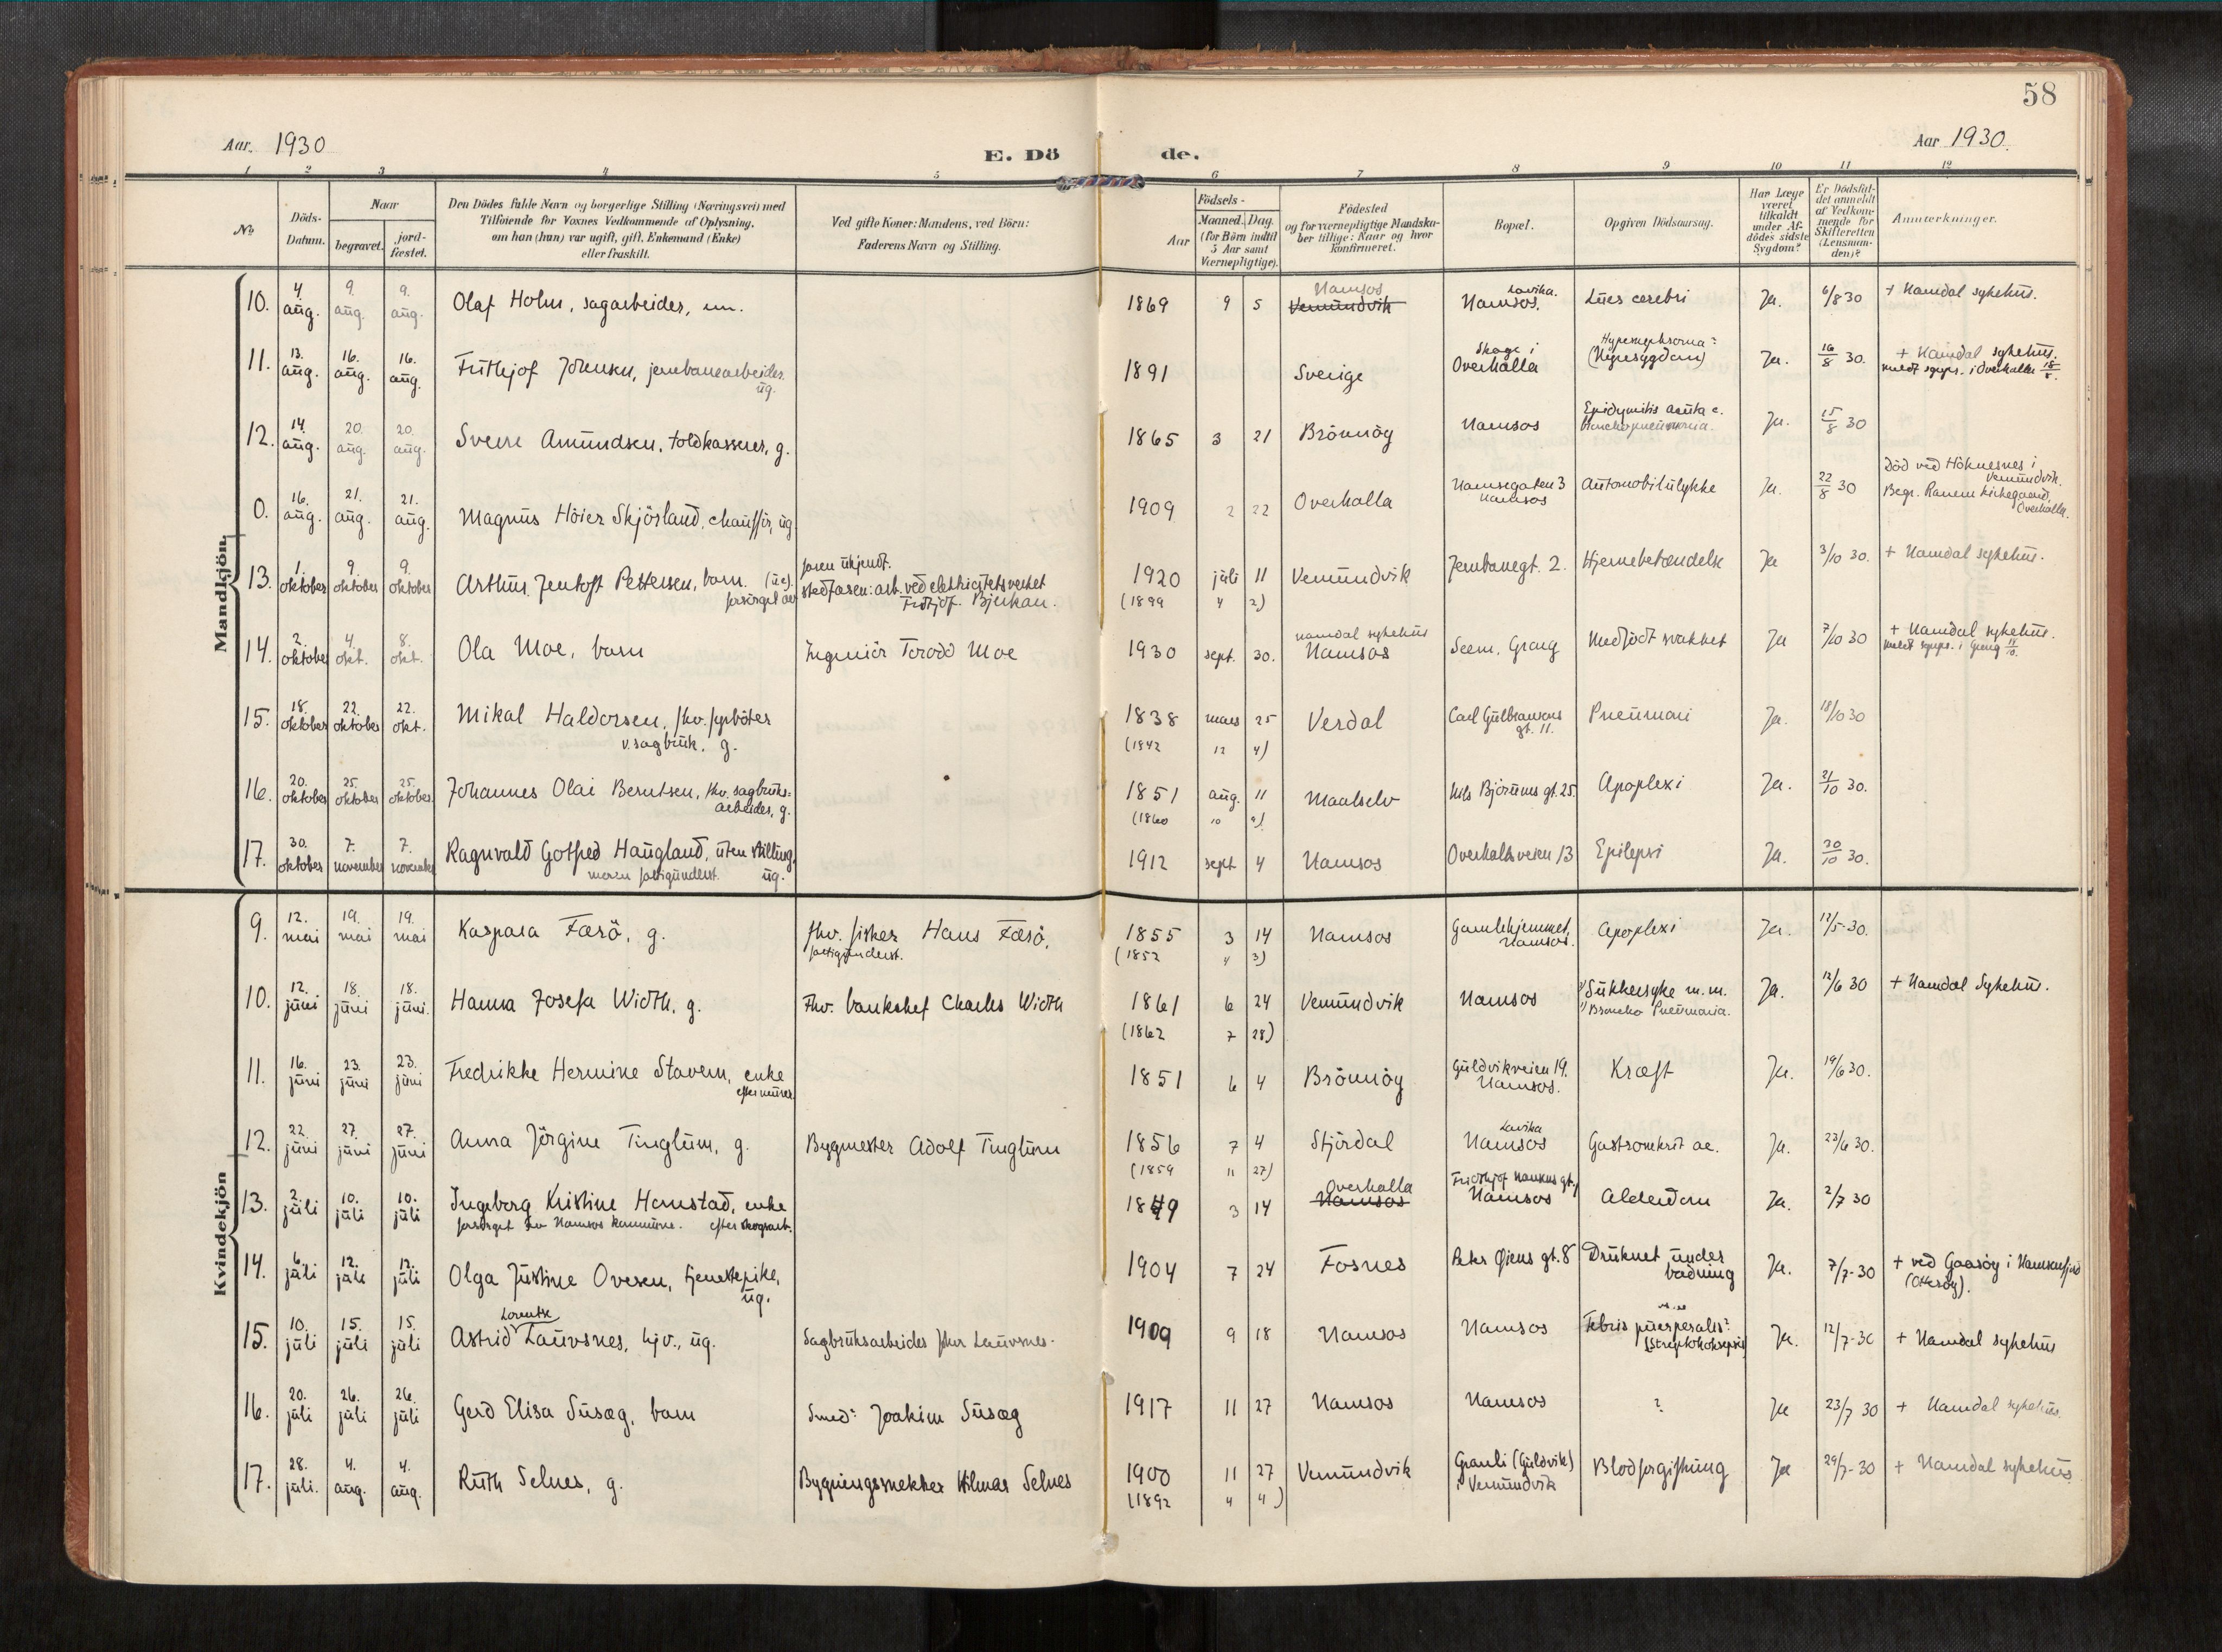 58
Aar. 1930
E. Dö
de.
Aar 1930.
1 2 3 4 5 6 7 8 9 10 11 12
No
Döds-
Datum.
Naar
begravet.
jord-
fæstet.
Den Dödes fulde Navn og borgerlige Stilling (Næringsvei) med
Tilföiende for Voxnes Vedkommende af Oplysning,
om han (hun) var ugift, gift, Enkemand (Enke)
eller fraskilt.
Ved gifte Koner: Mandens, ved Börn:
Faderens Navn og Stilling.
Födsels-
Aar
Maaned. Dag.
(for Börn indtil
5 Aar samt
Værnepligtige).
Födested
og for værnepligtige Mandska-
ber tillige: Naar og hvor
konfirmeret.
Bopæl.
Opgiven Dödsaarsag.
Har Læge
været
tilkaldt
under Af-
dödes sidste
Sygdom?
Er Dödsfal-
det anmeldt
af Vedkom-
mende for
Skifteretten
(Lensman-
den)?
Anmærkninger.
Mandkjön.
10. 4. aug. 9. aug. 9. aug. Olaf Holm, sagarbeider, um. 1869 9 5 Namsos Vemundvik Lavika. Namsos. Lues cerebri Ja. 6/8 30 + Namdal sykehus.
11. 13. aug. 16. aug. 16. aug. Frithjof Johnsen, jernbanearbeider. ug. 1891 Sverige Skage i Overhalla (Nyresygdom) Ja. 16/8 30. + Namdal sykehus.
i Overhalla 18/8.
12. 14. aug. 20. aug. 20. aug. Sverre Amundsen, toldkasserer, g. 1865 3 21 Brönnöy Namsos Epidymitis acuta c.
Bronchopneumonia. Ja. 15/8 30
0. 16. aug. 21. aug. 21. aug. Magnus Höier Skjörland, chaufför, ug. 1909 2 22 Overhalla Namsegaten 3
Namsos Automobilulykke Ja. 22/8 30 Död ved Höknesnes i
Vemundvik.
Begr. Ranem kirkegaard,
Overhalla.
13. 1. oktober 9. oktober 9. oktober Arthur Jentoft Pettersen, barn. (u.e.)
forsörget av
faren ukjendt.
stedfaren: arb. ved elektricitetsverket
Fridtjof Bjerkan. 1920 juli 11 Vemundvik Jernbanegt. 2. Hjernebetændelse Ja 3/10 30. + Namdal sykehus.
(1899 4 2)
14. 2. oktober 4. okt. 8. okt. Ola Moe, barn Ingeniör Torodd Moe 1930 sept. 30. Namdal sykehus
Namsos Seem, Grong Medfödt svakhet Ja 7/10 30 + Namdal sykehus.
i Grong
15. 18. oktober 22. oktober 22. okt. Mikal Haldorsen, fhv. fyrböter
v. sagbruk, g. 1838 mars 25 Verdal Carl Gulbransons
gt. 11. Pneumoni Ja. 18/10 30
(1842 12 4)
16. 20. oktober 25. oktober 25. oktober. Johannes Olai Berntsen, fhv. sagbruks-
arbeider, g. 1851 aug. 11 Maalselv Nils Björums gt. 25. Apoplexi Ja. 21/10 30.
(1860 10 9)
17. 30. oktober 7. november 7. november Ragnvald Gotfred Haugland, uten stilling,
moren fattigunderst. ug. 1912 sept 4 Namsos Overhallsveien 13 Epilepsi Ja. 30/10 30.
Kvindekjön
9. 12. mai 19. mai 19. mai Kaspara Færö, g. fhv. fisker Hans Færö,
fattigunderst. 1855 3 14 Namsos Gamlehjemmet,
Namsos. Apoplexi Ja. 12/5-30.
(1852 4 3)
10. 12. juni 18. juni 18. juni. Hanna Josefa Width, g. Fhv. banksjef Charles Width 1861 6 24 Vemundvik Namsos Sukkersyke m.m.
Broncho Pneumonia. Ja. 12/6 30 + Namdal Sykehus.
(1862 7 28)
11. 16. juni 23. juni 23. juni Fredrikke Hermine Stavem, enke
efter murer 1851 6 4 Brönnöy Guldvikveien 19.
Namsos. Kræft Ja. 19/6 30.
12. 22. juni 27. juni 27. juni Anna Jörgine Tinglum, g. Bygmester Adolf Tinglum 1856 7 4 Stjördal Lavika
Namsos Ja. 23/6 30.
(1859 11 27)
13. 2. juli 10. juli 10. juli Ingeborg Kristine Hernstad, enke
forsörget av Namsos kommune. efter skogsarb. 1849 3 14 Overhalla
Namsos Fridthjof Nansens gt.
Namsos Alderdom Ja. 2/7 30
14. 6. juli 12. juli 12. juli Olga Justine Ovesen, tjenestepike,
ug. 1904 7 24 Fosnes Peter Øiens gt. 8 Druknet under
badning Ja. 7/7-30 + ved Gaasöy i Namsenfjord
(Otteröy).
15. 10. juli 15. juli 15. juli Lorentse
Astrid Lauvsnes, hjv., ug. Sagbruksarbeider Lauvsnes. 1909 9 18 Namsos Namsos Febris puerperalis:
(Streptokoksepsis) Ja. 12/7-30 + Namdal sykehus
16. 20. juli 26. juli 26. juli Gerd Elisa Susæg, barn Smed: Joakim Susæg 1917 11 27 Namsos Namsos ? Ja 23/7 30 + Namdal sykehus.
17. 28. juli. 4. aug. 4. aug. Ruth Selnes, g. Bygningssnekker Hilmar Selnes 1900 11 27 Vemundvik Granli (Guldvik)
i Vemundvik Blodforgiftning Ja 29/7-30 + Namdal sykehus
(1892 4 4)